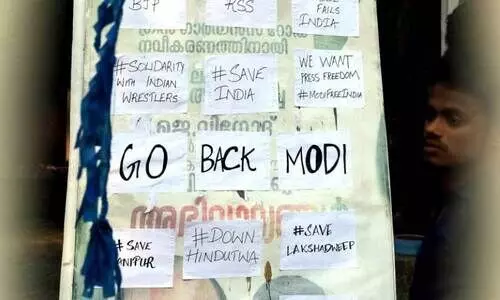 BJP
RSS
FAILS
INDIA
നവീകരണത്തിനായി
#SOLIDARITY
WITH INDIAN
WRESTLERS
#SAVE
INDIA
WE WANT
PRESS FREEDOM
#MODIFREEINDIA
ജെ.വിനോദ്
GO BACK MODI
#SAVE
#DOWN
HINDUTWA
#SAVE
LAKSHADWEEP